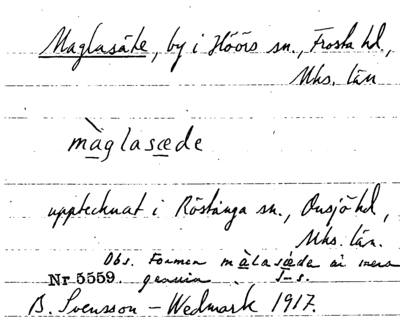 Maglasäte, by i Höörs sn., Frosta hd.,
Mhs. län
màglasæde
upptecknat i Röstånga sn., Onsjö hd,
Mhs. län.
Obs. Formen màlasæde är mera
Nr 5559. genuin
B. Svensson – Wedmark 1917.